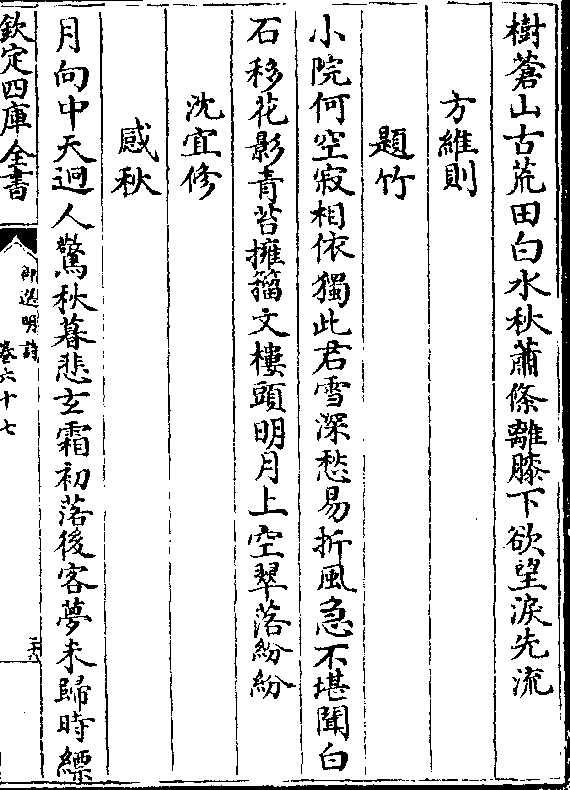 樹蒼山古荒田白水秋蕭條離膝下欲望淚先流
方維則
題竹
小院何空寂相依獨此君雪深愁易折風急不堪聞白
石移花影青苔擁籀文樓頭明月上空翠落紛紛
沈宜修
感秋
月向中天迥人驚秋暮悲玄霜初落後客夢未歸時縹
欽定四庫全書
御選明詩
卷六十七